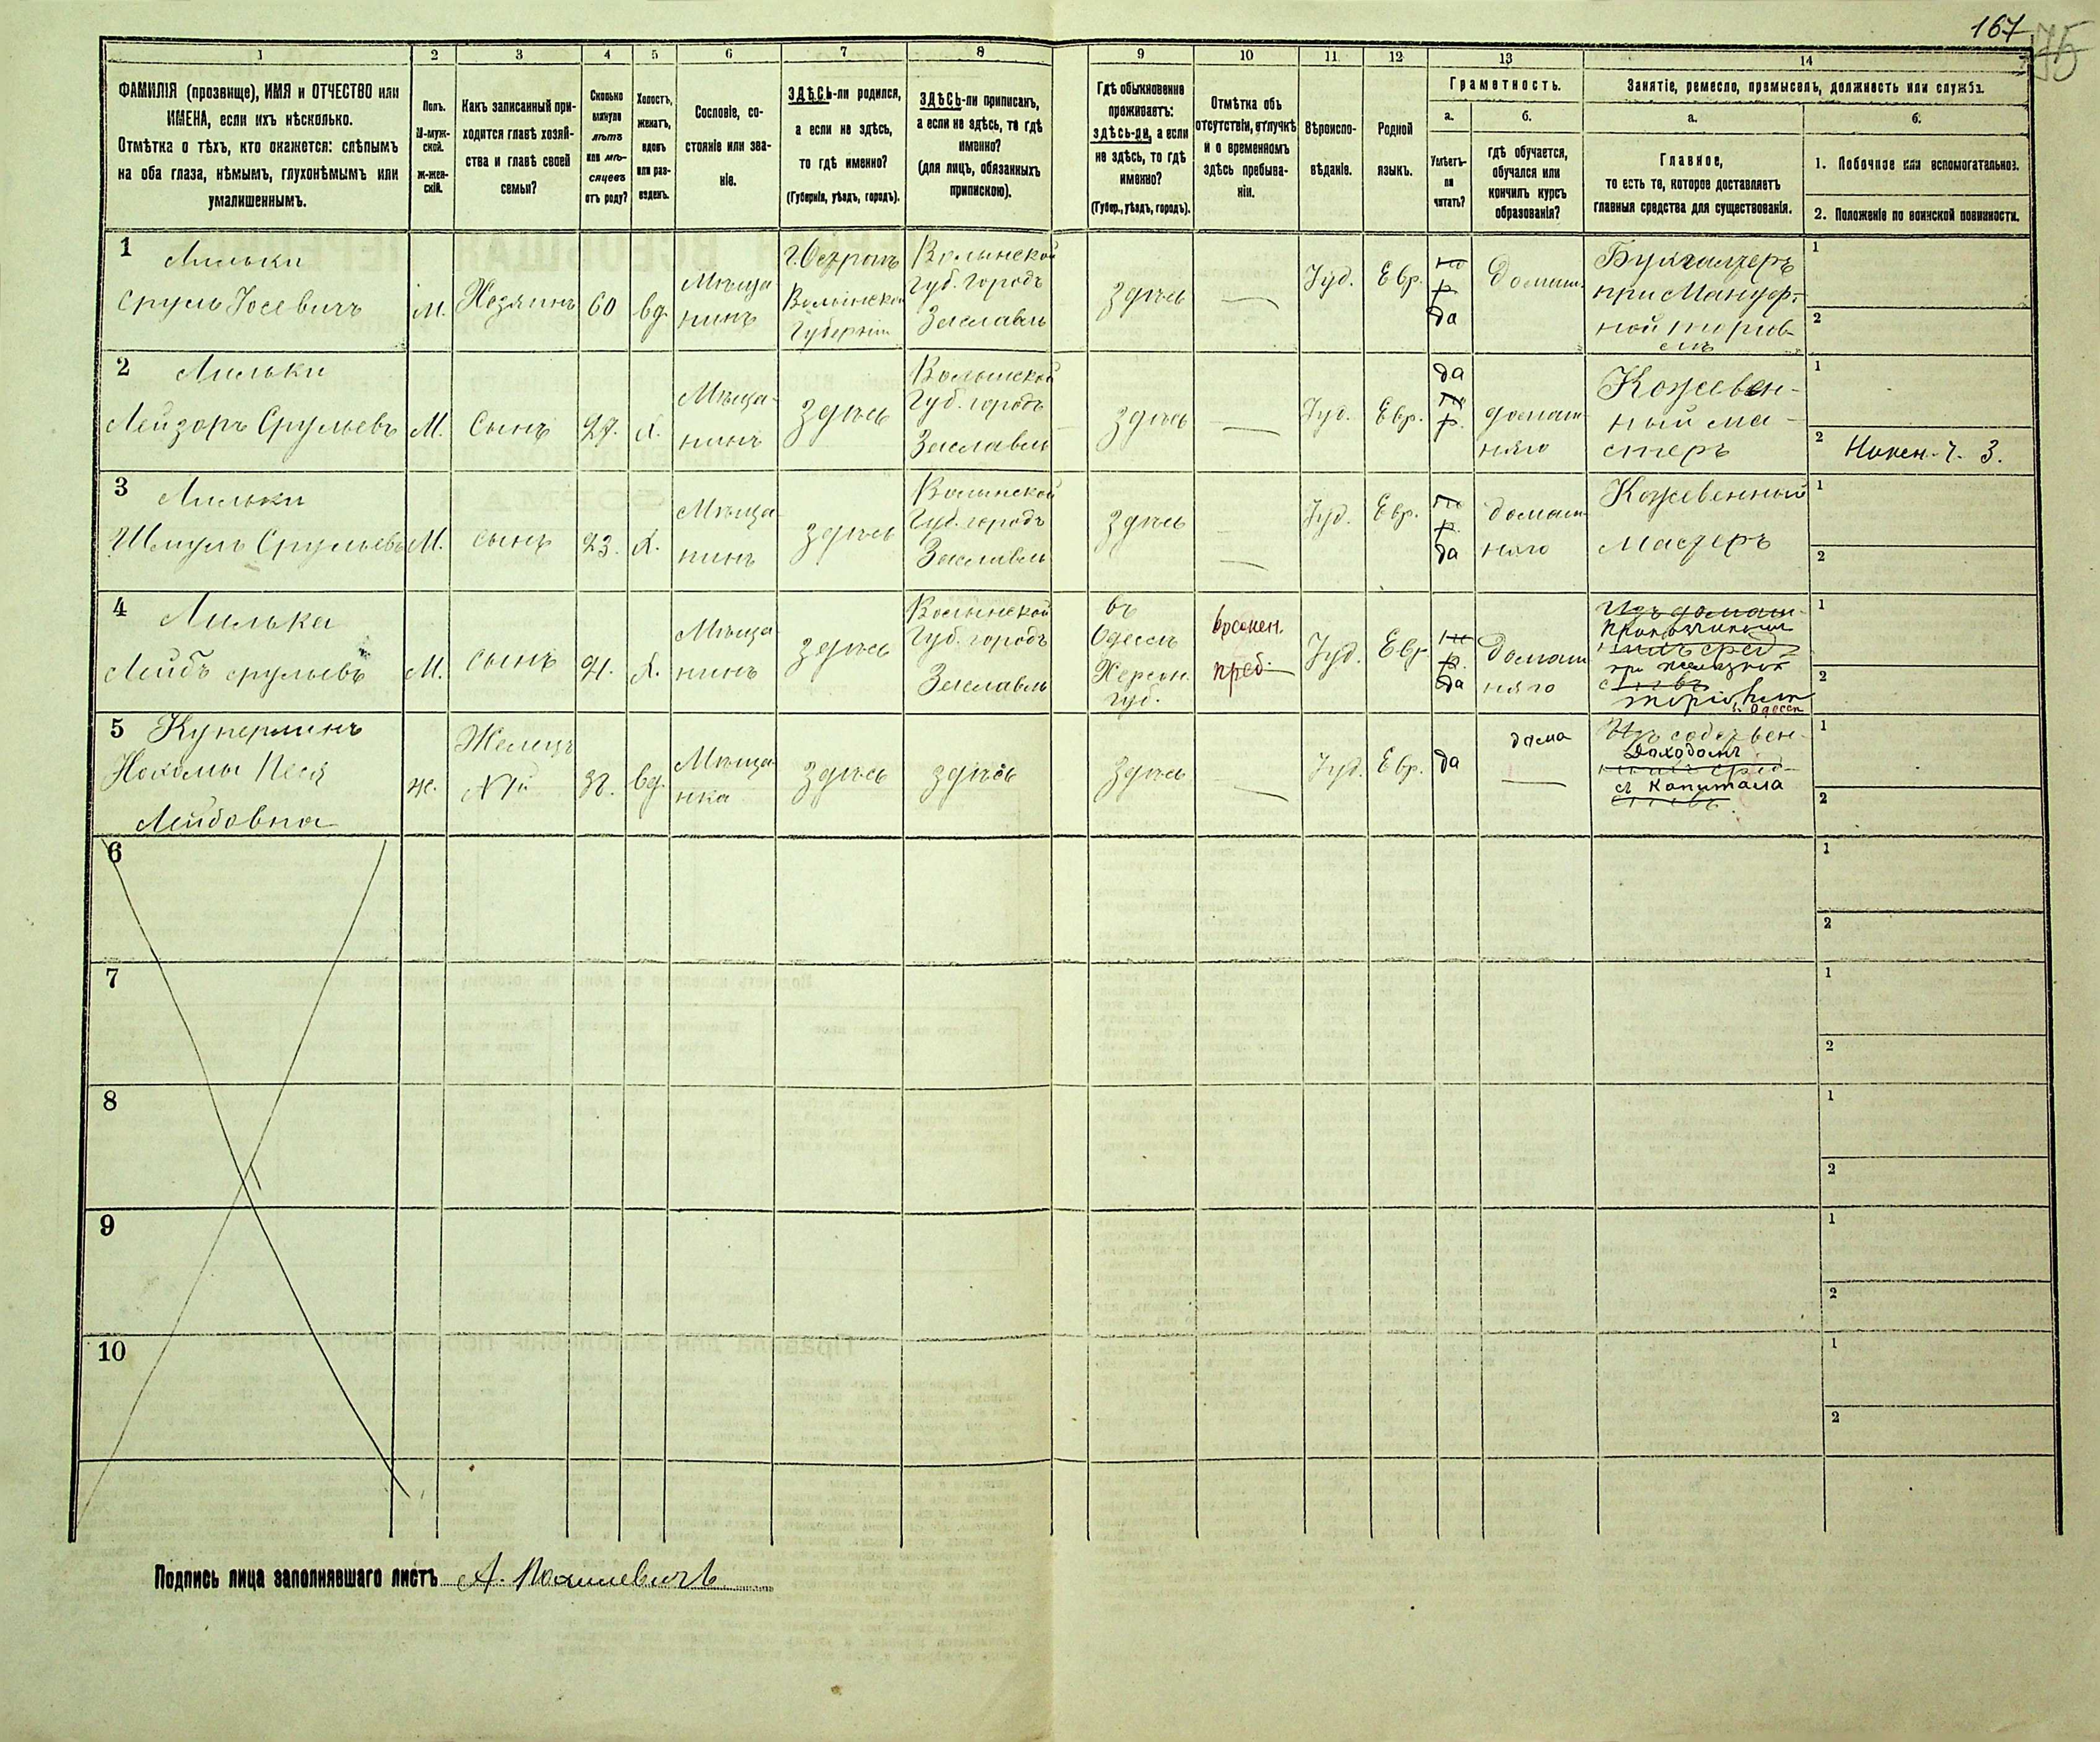 167
75
1
2
3
4
5
6
7
8
9
10
11
12
13
14
ФАМИЛІЯ (прозвище), ИМЯ и ОТЧЕСТВО или
ИМЕНА, если ихъ нѣсколько.
Отмѣтка о тѣхъ, кто окажется: слѣпымъ
на оба глаза, нѣмымъ, глухонѣмымъ или
умалишеннымъ.
Полъ.
М-муж-
ской.
Ж-жен-
скій.
Какъ записанный при-
ходится главѣ хозяй-
ства и главѣ своей
семьи?
Сколько
минуло
лѣтъ
или мѣ-
сяцевъ
отъ роду?
Холостъ,
женатъ,
вдовъ
или раз-
веденъ.
Сословіе, со-
стояніе или зва-
ніе.
ЗДѢСЬ-ли родился,
а если не здѣсь,
то гдѣ именно?
(Губернія, уѣздъ, городъ).
ЗДѢСЬ-ли приписанъ,
а если не здѣсь, то гдѣ
именно?
(для лицъ, обязанныхъ
припискою).
Гдѣ обыкновенно
проживаетъ:
здѣсь-ли, а если
не здѣсь, то гдѣ
именно?
(Губер., уѣздъ, городъ).
Отмѣтка объ
отсутствіи, отлучкѣ
и о временномъ
здѣсь пребыва-
ніи.
Вѣроиспо-
вѣданіе.
Родной
языкъ.
Грамотность.
а.
Умѣетъ-
ли
читать?
б.
гдѣ обучается,
обучался или
кончилъ курсъ
образованія?
Занятіе, ремесло, промыселъ, должность или служба.
а.
Главное,
то есть то, которое доставляетъ
главныя средства для существованія.
б.
1. Побочное или вспомогательное.
2. Положеніе по воинской повинности.
1 Лильки
Сруль Іосевичъ
М.
Хозяинъ
60
вд.
Мѣща
нинъ
г. Острогъ
Волынской
Губерніи
Волынской
Губ. городъ
Заславль
здѣсь
Іуд.
Евр.
р.
да
Домаш.
Бухгалтеръ
при Мануф.-
ной торгов-
лѣ
1
2
2 Лильки
Лейзоръ Срульевъ
М.
Сынъ
27.
х.
Мѣща-
нинъ
здѣсь
Волынской
Губ. городъ
Заславль
здѣсь
Іуд.
Евр.
да
р.
домаш-
няго
Кожевен-
ный ма-
стеръ
1
2
3 Лильки
Шмуль Срульевъ
М.
сынъ
23.
х.
Мѣща-
нинъ
здѣсь
Волынской
Губ. городъ
Заславль
здѣсь
Іуд.
Евр.
р.
да
домаш-
няго
Кожевенный
Мастеръ
1
2
4 Лильки
Лейбъ срульевъ
М.
сынъ
21.
х.
Мѣща-
нинъ
здѣсь
Волынской
Губ. городъ
Заславль
въ
Одессѣ
Херсон.
губ.
времен.
преб.
Іуд.
Евр
р.
да
Домаш
няго
1
2
5
Лейбовна
ж.
Жилица
вд.
Мѣща
нка
здѣсь
здѣсь
здѣсь
Іуд.
Евр.
да
дома
Доходомъ
съ Капитала
1
2
6
1
2
7
1
2
8
1
2
9
1
2
10
1
2
Подпись лица заполнявшаго листъ